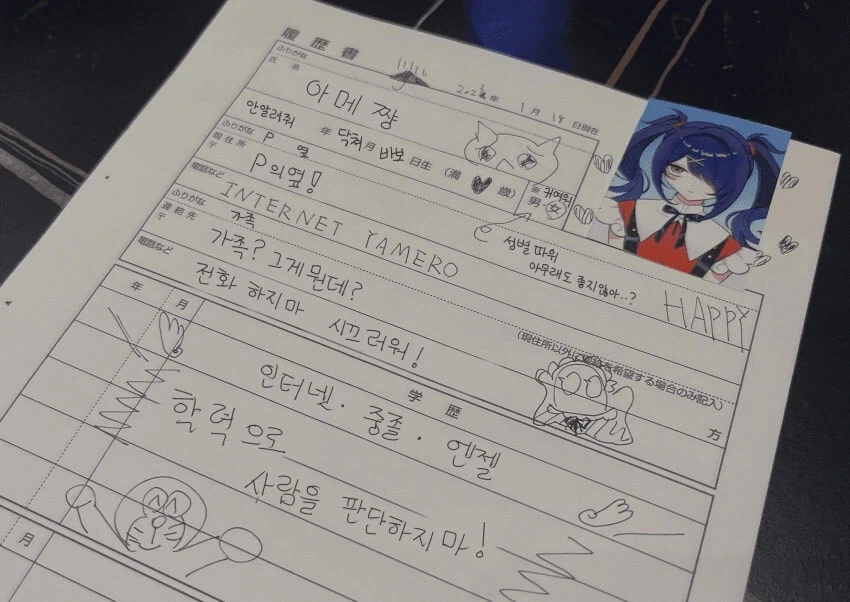 履歴書
2023年 1月 18日現在
ふりがな
氏名 아메 쨩
안알려줘 年 닥쳐 月 바보 日生 (満 歳)
男・女 귀여워
ふりがな P 옆
現住所 〒 P의옆!
성별 따위
아무래도 좋지않아..?
電話など INTERNET YAMERO
HAPPY
ふりがな 가족
連絡先 〒 가족? 그게뭔데?
(現住所以外に連絡を希望する場合のみ記入)
方
電話など 전화 하지마 시끄러워!
年 月
学歴
인터넷. 중졸. 엔젤
학력으로
사람을 판단하지마!
月